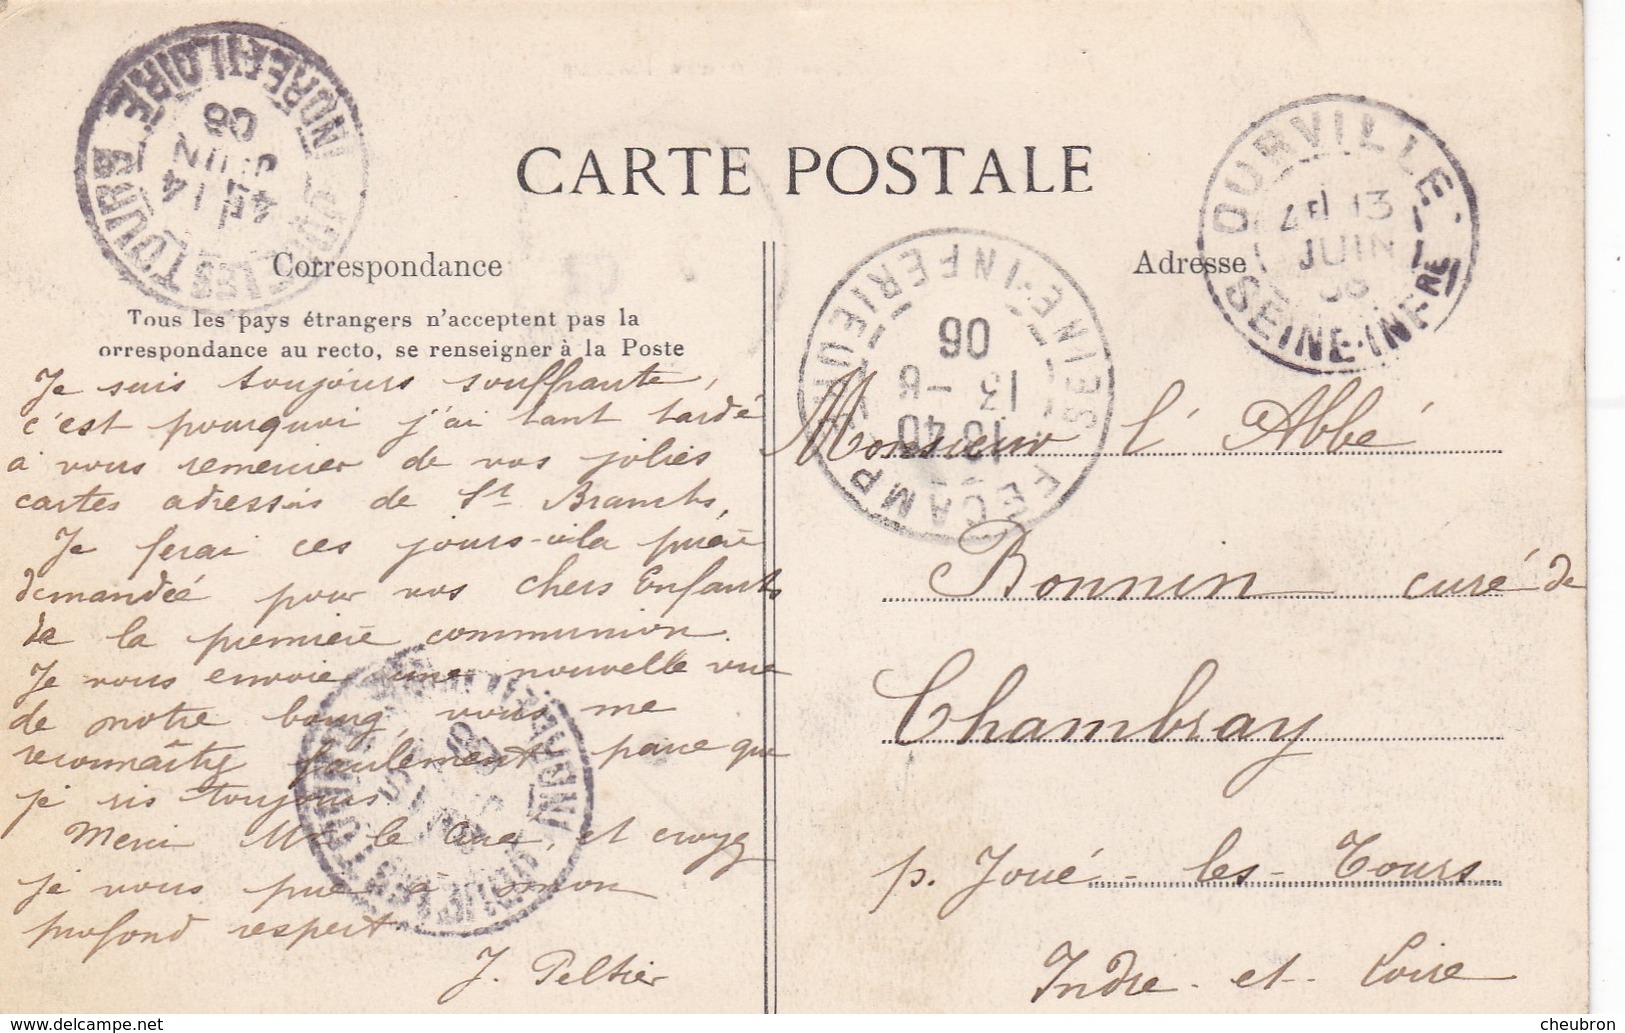 CARTE POSTALE
Correspondance
Tous les pays étrangers n'acceptent pas la
orrespondance au recto, se renseigner à la Poste
Je suis toujours souffrante,
c'est pourquoi j'ai tant tardé
à vous remercier de vos jolies
cartes adressés de St Branchs,
Je ferai ces jours-ci la prière
demandée pour vos chers Enfants
de la première communion.
Je vous envoie une nouvelle vue
de notre bourg, vous me
reconnaîtrez facilement parce que
je ris toujours
Merci Mr le Curé, et croyez
je vous prie à mon
profond respect
J. Peltier
Adresse
Monsieur l'Abbé
Bonnin curé de
Chambray
p. Joué-les-Tours
Indre-et-Loire
INDRE-ET-LOIRE
JOUÉ-LES-TOURS
14
JUIN
06
OURVILLE
13
JUIN
06
SEINE-INF-RE
SEINE-INFERIEURE
FECAMP
10 40
13 -6
06
cheubron @ delcampe.net